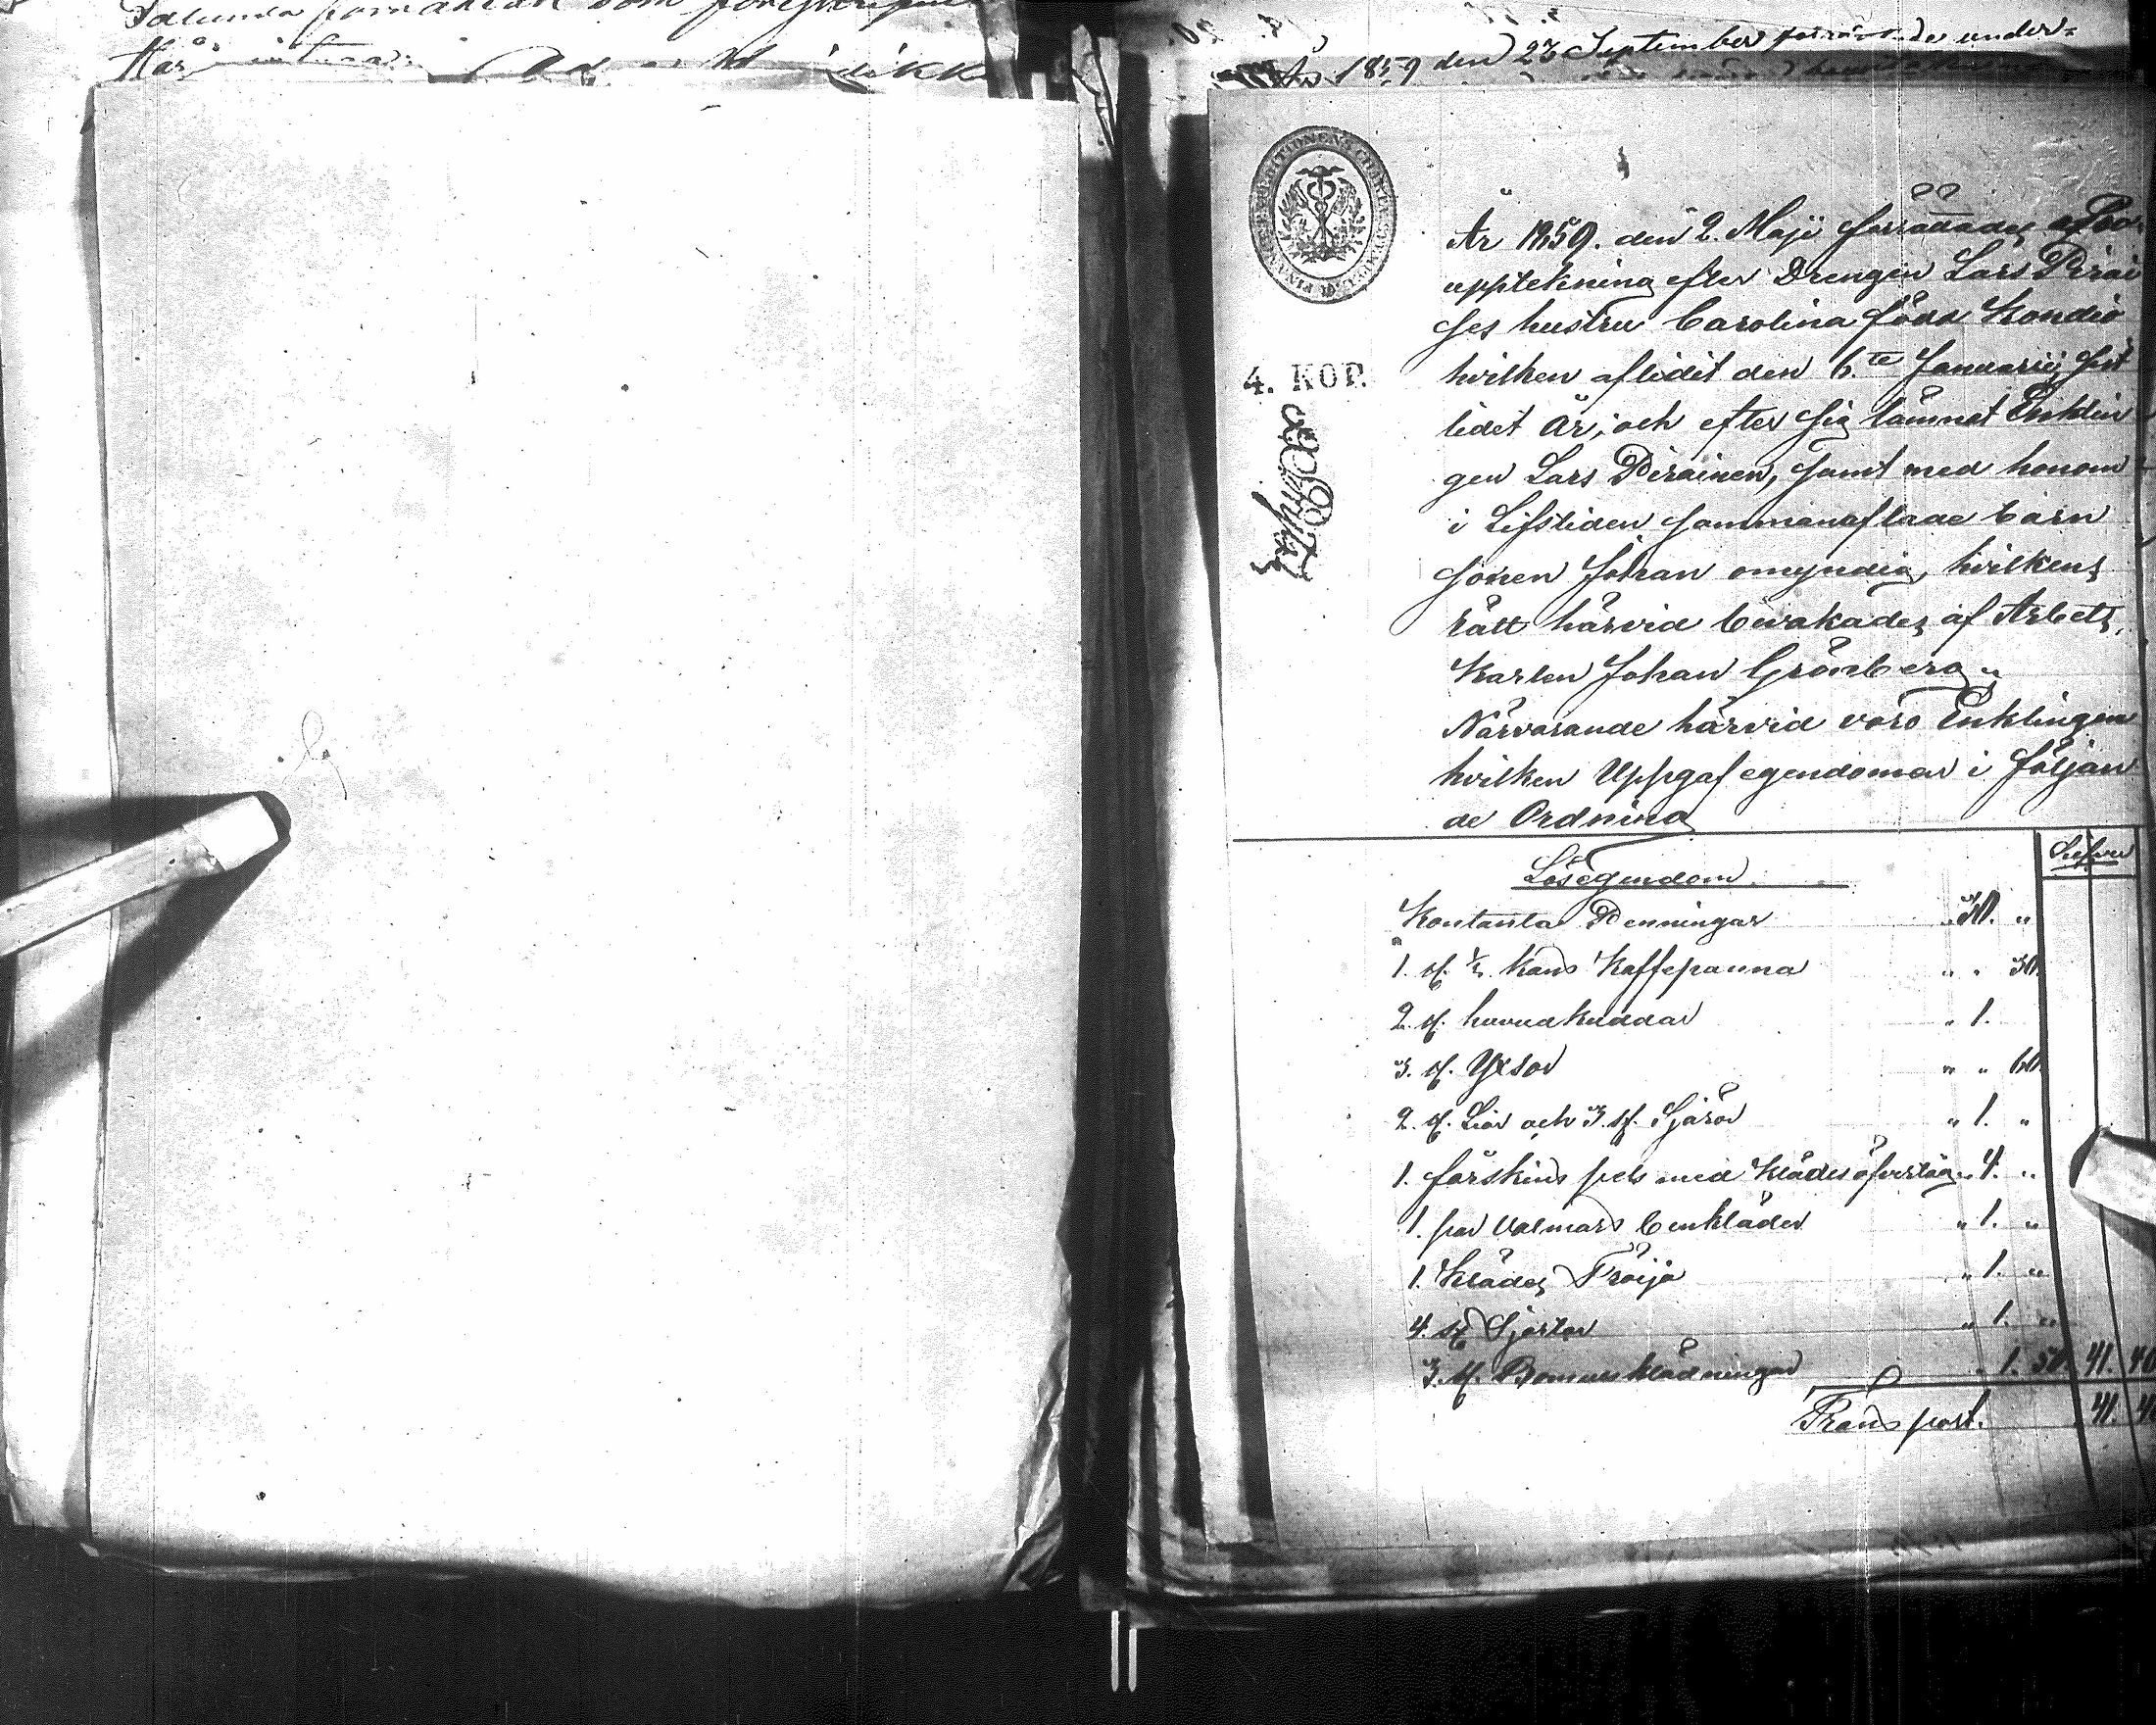 Salunda som
År 1859 den 23 September under=
FINANS EXPEDITIONENS CHARTÆ
4. KOP.
År 1859. den 2. Maji förrättades af Bo
upptekning efter Drengen Lars Pirai
ses hustru Carolina född Kondia
hvilken aflidit den 6.te Januarii sist
lidet År; och efter sig lämnat Enklin
gen Lars Pirainen, samt med honom
i Lifstiden sammanaflade barn
sonen Johan omyndig, hvilkens
rätt härvid bevakades af Arbets
Karlen Johan Grönberg
Närvarande härvid voro Enklingen
hvilken Uppgaf egendomen i följan
de Ordning
Silfver
Lösegendom.
Kontanta Penningar 30. "
1. st. ½ kans Kaffepanna " " 30
2. st. huvudkuddar " 1.
3. st. Yxor " " 60
2. st. Liar och 3. st. Sjäror " 1. "
1. fårskins pels med klädesöfverdrag " 4. "
1. par valmars benkläder " 1. "
1. klädes Tröija " 1. "
4. st Sjortor " 1. "
3. st. Bomulsklädningar " 1. 50 41. 40
Transport. 41. 40